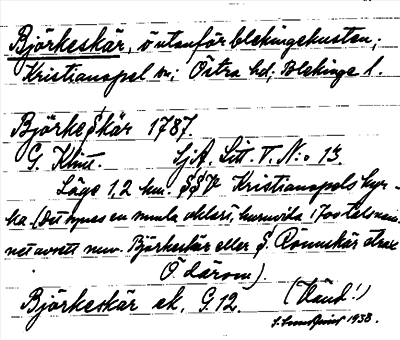 Björkeskär, ö utanför blekingekusten;
Kristianopel sn; Östra hd; Blekinge l.
Björkeskär 1787.
G. Klint. SjA. Litt. T. N:o 13.
Läge 1,2 km. SSV Kristianopels kyr-
ka. (Det synes en smula oklart, huruvida 1700 talsnam-
net avsett nuv. Björkeskär eller S. Rönnskär strax
Ö därom).
Björkeskär ek. G. 12. (Känd!)
1938.